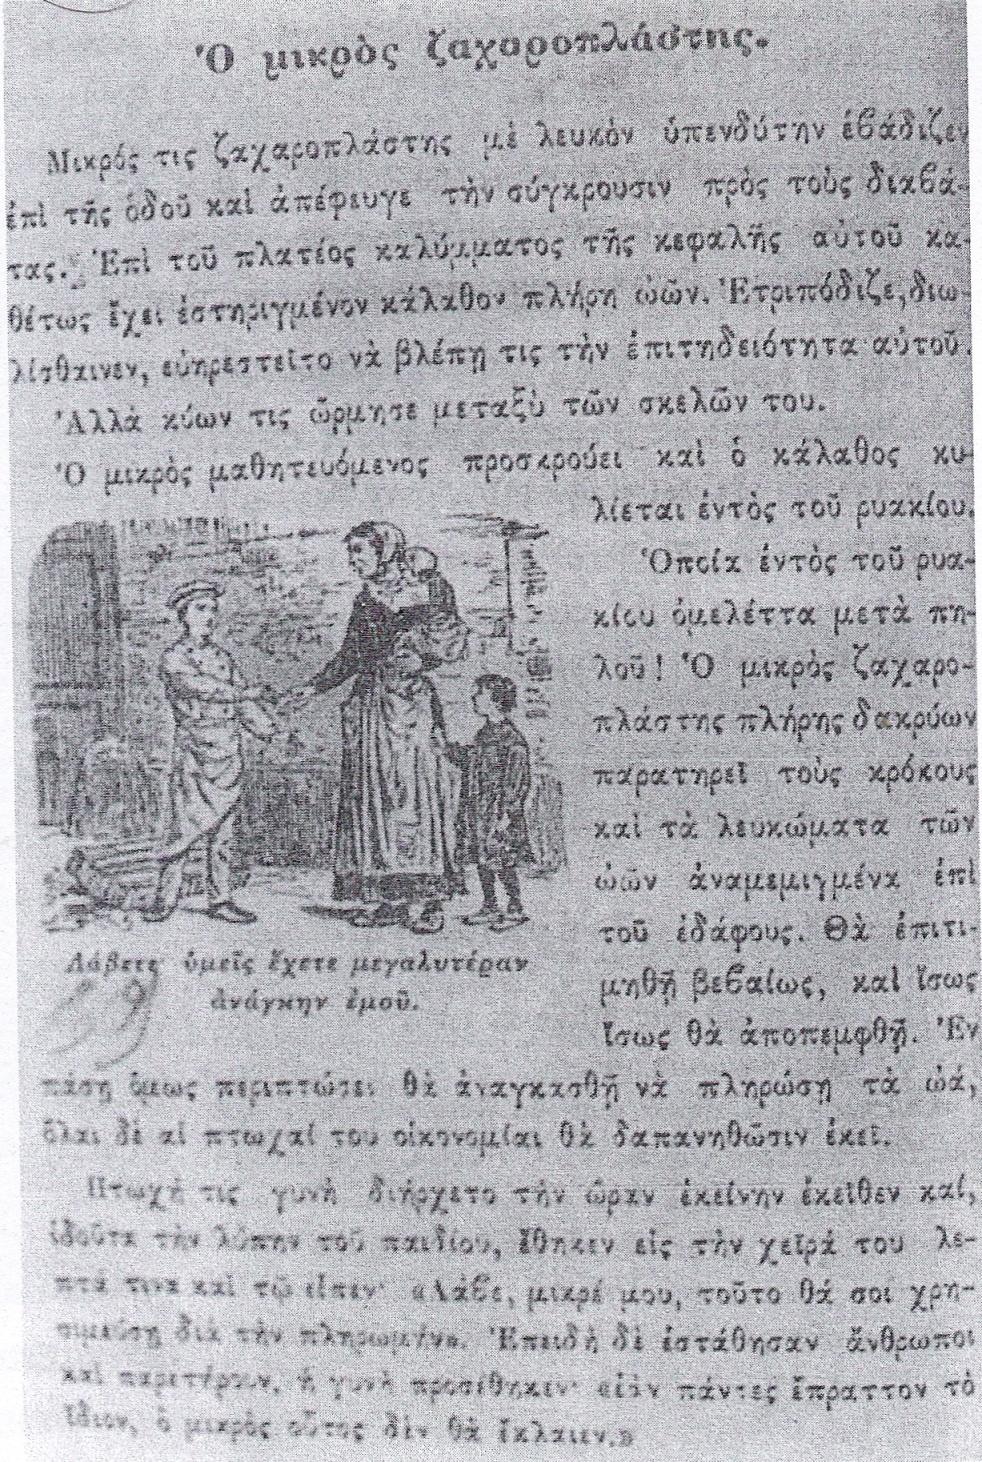 Ὁ μικρὸς ζαχαροπλάστης.
Μικρός τις ζαχαροπλάστης μὲ λευκὸν ὑπενδύτην ἐβάδιζεν
ἐπὶ τῆς ὁδοῦ καὶ ἀπέφευγε τὴν σύγκρουσιν πρὸς τοὺς διαβά-
τας. Ἐπὶ τοῦ πλατέος καλύμματος τῆς κεφαλῆς αὐτοῦ κα-
θέτως ἔχει ἐστηριγμένον κάλαθον πλήρη ὠῶν. Ἐτριπόδιζε, διω-
λίσθαινεν, εὐηρεστεῖτο νὰ βλέπῃ τις τὴν ἐπιτηδειότητα αὐτοῦ.
Ἀλλὰ κύων τις ὥρμησε μεταξὺ τῶν σκελῶν του.
Ὁ μικρὸς μαθητευόμενος προσκρούει καὶ ὁ κάλαθος κυ-
λίεται ἐντὸς τοῦ ρυακίου.
Ὁποία ἐντὸς τοῦ ρυα-
κίου ὀμελέττα μετὰ πη-
λοῦ! Ὁ μικρὸς ζαχαρο-
πλάστης πλήρης δακρύων
παρατηρεῖ τοὺς κρόκους
καὶ τὰ λευκώματα τῶν
ὠῶν ἀναμεμιγμένα ἐπὶ
τοῦ ἐδάφους. Θὰ ἐπιτι-
μηθῇ βεβαίως, καὶ ἴσως
ἴσως θὰ ἀποπεμφθῇ. Ἐν
Λάβετε ὑμεῖς ἔχετε μεγαλυτέραν
ἀνάγκην ἐμοῦ.
πάσῃ ὅμως περιπτώσει θὰ ἀναγκασθῇ νὰ πληρώσῃ τὰ ὠά,
ὅλαι δὲ αἱ πτωχαί του οἰκονομίαι θὰ δαπανηθῶσιν ἐκεῖ.
Πτωχή τις γυνὴ διήρχετο τὴν ὥραν ἐκείνην ἐκεῖθεν καί,
ἰδοῦσα τὴν λύπην τοῦ παιδίου, ἔθηκεν εἰς τὴν χεῖρά του λε-
πτά τινα καὶ τῷ εἶπεν· «Λάβε, μικρέ μου, τοῦτο θά σοι χρη-
σιμεύσῃ διὰ τὴν πληρωμήν». Ἐπειδὴ δὲ ἐστάθησαν ἄνθρωποι
καὶ παρετήρουν, ἡ γυνὴ προσέθηκεν· «ἐὰν πάντες ἔπραττον τὸ
ἴδιον, ὁ μικρὸς οὗτος δὲν θὰ ἔκλαιεν.»